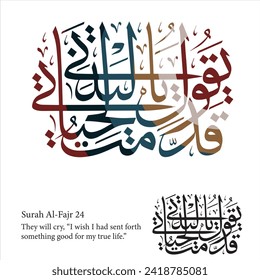 يقول يا ليتني قدمت لحياتي
Surah Al-Fajr 24
They will cry, “I wish I had sent forth
something good for my true life.”
يقول يا ليتني قدمت لحياتي
shutterstock.com · 2418785081